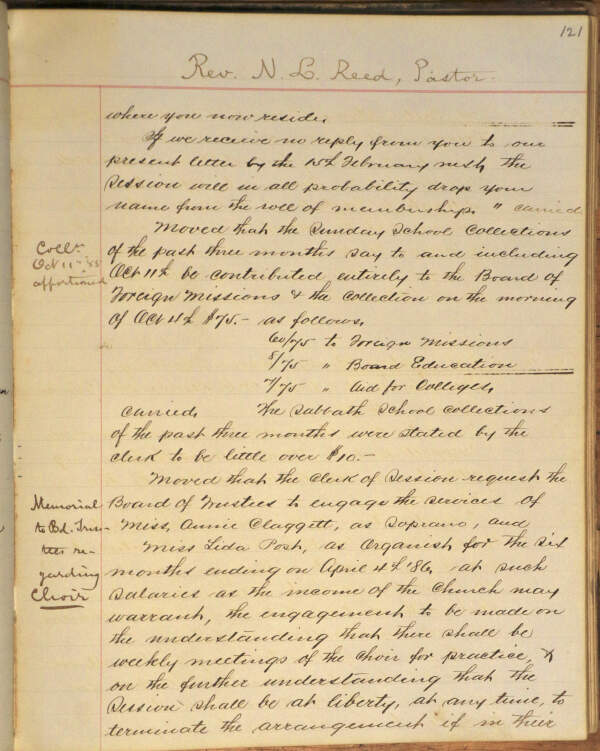 121
Rev. N. L. Reed, Pastor.
where you now reside.
If we receive no reply from you to our
present letter by the 15th February next, the
Session will in all probability drop your
name from the roll of membership. " carried
Moved that the Sunday School Collections
of the past three months say to and including
Oct 11th be contributed entirely to the Board of
Foreign Missions & the collection on the morning
of Oct 4th $75.- as follows,
60/75 to Foreign Missions
8/75 " Board Education
7/75 " Aid for Colleges,
Carried. The Sabbath School Collections
of the past three months were stated by the
clerk to be little over $10.-
Moved that the Clerk of Session request the
Board of Trustees to engage the services of
Miss, Annie Claggett, as Soprano, and
Miss Lida Post, as Organist, for the six
months ending on April 4th '86, at such
salaries as the income of the Church may
warrant, the engagement to be made on
the understanding that there shall be
weekly meetings of the Choir for practice, &
on the further understanding that the
Session shall be at liberty, at any time, to
terminate the arrangement if in their
Colln
Oct 11th '85
apportioned
Memorial
to Bd. Trus-
tees re-
garding
Choir